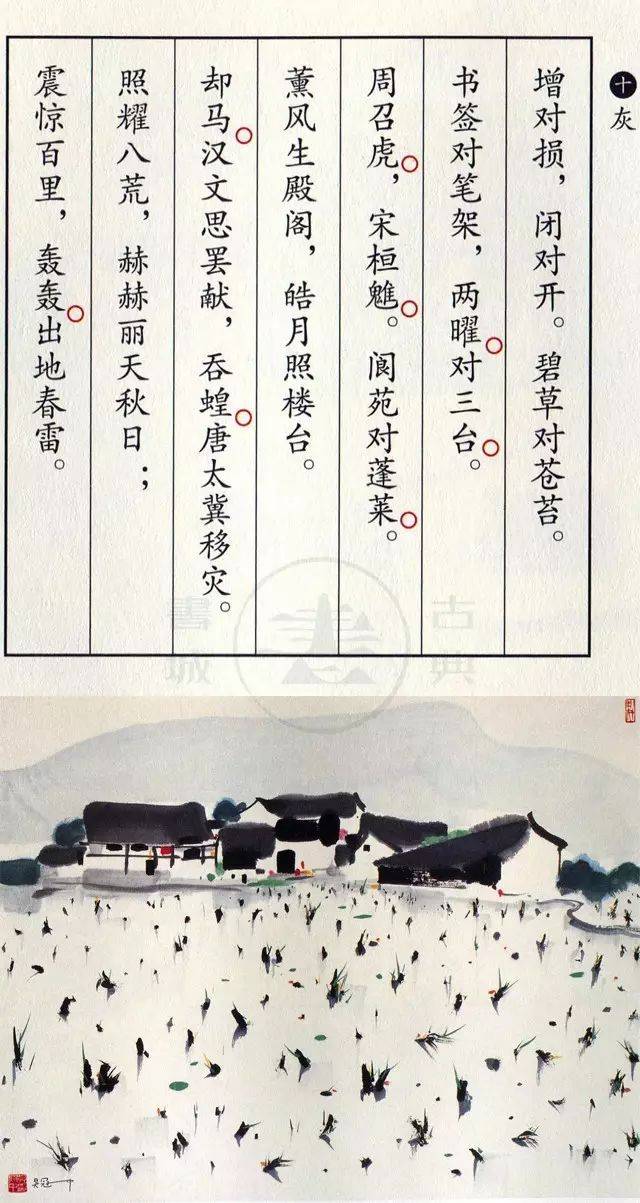 十 灰
增对损，闭对开。碧草对苍苔。
书签对笔架，两曜对三台。
周召虎，宋桓魋。阆苑对蓬莱。
薰风生殿阁，皓月照楼台。
却马汉文思罢献，吞蝗唐太冀移灾。
照耀八荒，赫赫丽天秋日；
震惊百里，轰轰出地春雷。
古典
書城
吴冠中